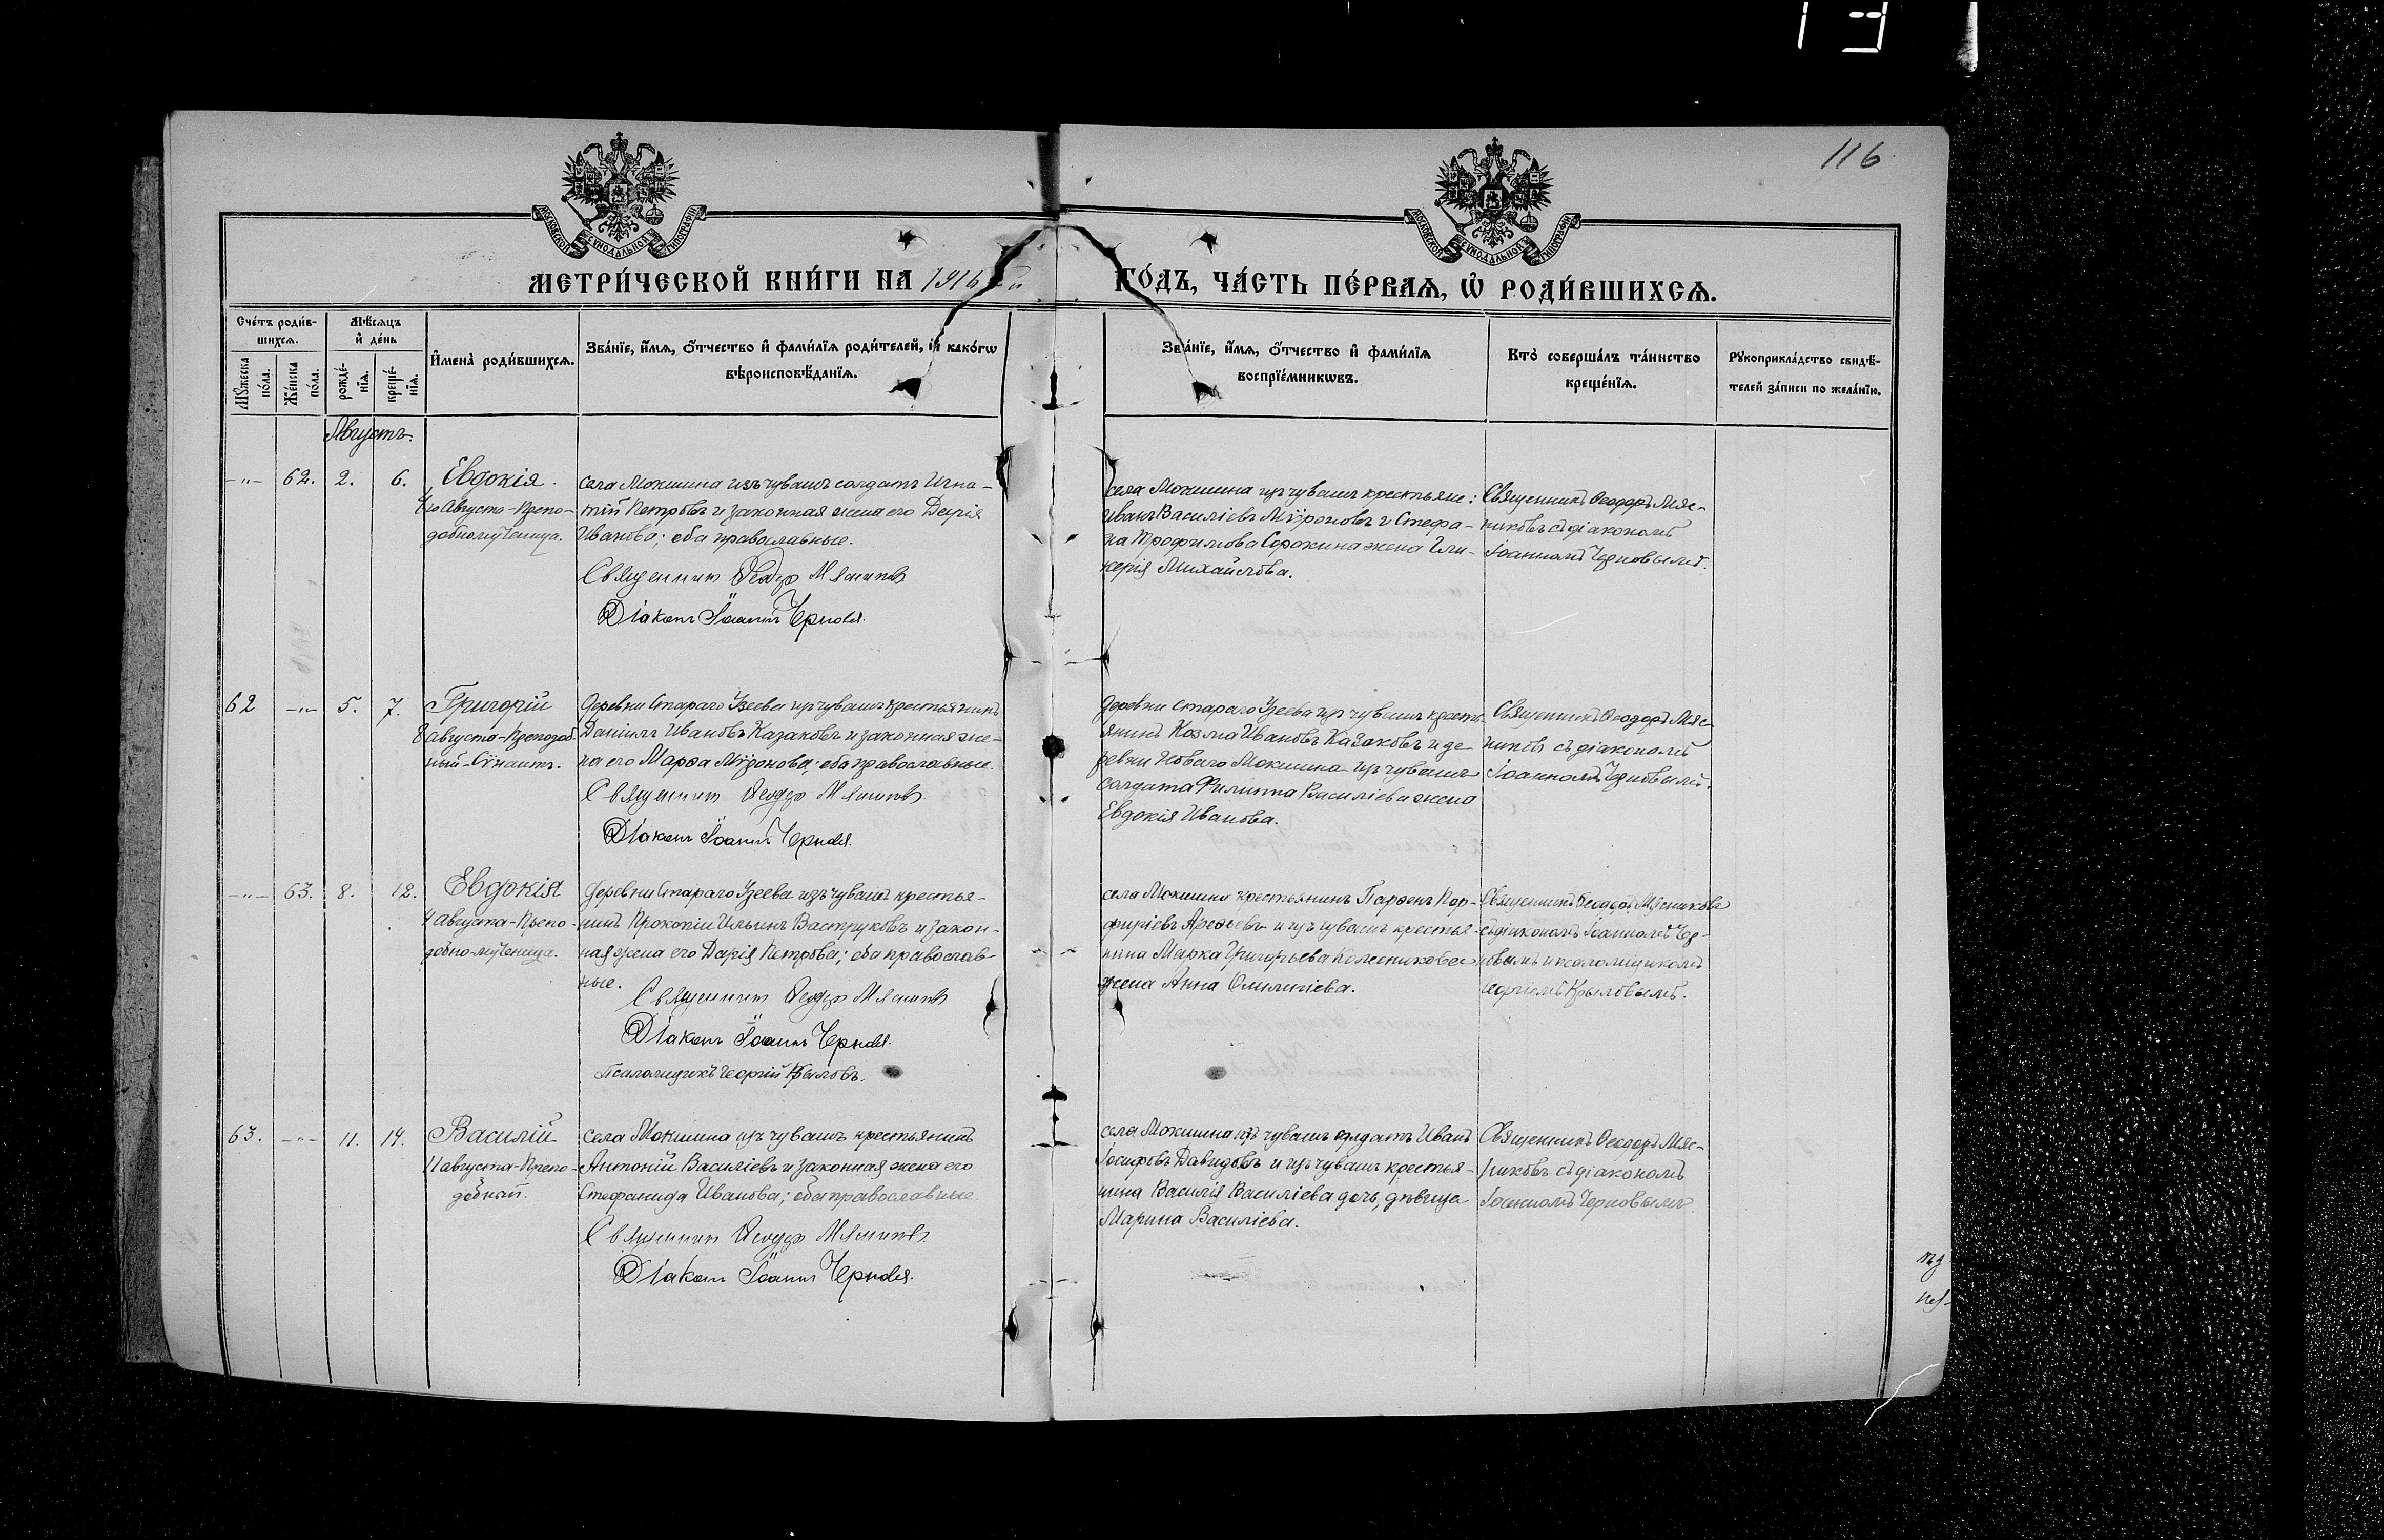 116
МОСКОВСКОЙ СѴНОДАЛЬНОЙ ТИПОГРАФІИ
МОСКОВСКОЙ СѴНОДАЛЬНОЙ ТИПОГРАФІИ
МЕТРИ́ЧЕСКОЙ КНИ́ГИ НА 1916 й
ГО́ДЪ, ЧА́СТЬ ПЕ́РВАѦ, Ѡ҆ РОДИ́ВШИХСѦ.
Сче́тъ роди́в-
шихсѧ.
Мꙋ́жеска по́ла.
Же́нска по́ла.
Мѣ́сѧцъ
и҆ де́нь
рожде́нїѧ.
креще́нїѧ.
И҆мена̀ роди́вшихсѧ.
Зва́нїе, и҆́мѧ, ѻ҆́тчество и҆ фами́лїѧ роди́телей, и҆ како́гѡ
вѣроисповѣ́данїѧ.
Зва́нїе, и҆́мѧ, ѻ҆́тчество и҆ фами́лїѧ
воспрїе́мникѡвъ.
Кто̀ соверша́лъ та́инство
креще́нїѧ.
Рꙋкоприкла́дство свидѣ́-
телей за́писи по жела́нїю.
Августъ.
-„- 62. 2. 6.
Евдокія.
4го Августа-Препо-
добномученица.
села Мокшина изъ чувашъ солдатъ Игна-
тій Петровъ и законная жена его Дарія
Иванова; оба православные.
Священникъ Ѳеодоръ Мясниковъ
Діаконъ Іоаннъ Черновъ.
села Мокшина изъ чувашъ крестьяне:
Иванъ Василіевъ Мѵроновъ и Стефа-
на Трофимова Сорокина жена Гли-
керія Михайлова.
Священникъ Ѳеодоръ Мяс-
никовъ съ діакономъ
Іоанномъ Черновымъ.
62 -„- 5. 7.
Григорій
8 августа-Преподоб-
ный-Сѵнаитъ.
Деревни Стараго Узеева изъ чувашъ крестьянинъ
Даніилъ Ивановъ Казаковъ и законная же-
на его Марѳа Мѵронова; оба православные.
Священникъ Ѳеодоръ Мясниковъ.
Діаконъ Іоаннъ Черновъ.
деревни Стараго Узеева изъ чувашъ кресть-
янинъ Козма Ивановъ Казаковъ и де-
ревни Новаго Мокшина изъ чувашъ
солдата Филиппа Василіева жена
Евдокія Иванова.
Священникъ Ѳеодоръ Мяс-
никовъ съ діакономъ
Іоанномъ Черновымъ.
-„- 63. 8. 12.
Евдокія
4 августа-Препо-
добно-мученица.
деревни Стараго Узеева изъ чувашъ крестья-
нинъ Прокопій Ильинъ Вастрюковъ и закон-
ная жена его Дарія Петрова; оба православ-
ные.
Священникъ Ѳеодоръ Мясниковъ
Діаконъ Іоаннъ Черновъ.
Псаломщикъ Георгій Крыловъ.
села Мокшина крестьянинъ Парѳенъ Пор-
фиріевъ и изъ чувашъ крестья-
нина Марка Григорьева Колесникова
жена Анна
Священникъ Ѳеодоръ Мясниковъ
съ діакономъ Іоанномъ Чер-
новымъ и псаломщикомъ
Георгіемъ Крыловымъ.
63. -„- 11. 14.
Василій
11 августа-Препо-
добный.
села Мокшина изъ чувашъ крестьянинъ
Антоній Василіевъ и законная жена его
Стефанида Иванова; оба православные.
Священникъ Ѳеодоръ Мясниковъ.
Діаконъ Іоаннъ Черновъ.
села Мокшина изъ чувашъ солдатъ Иванъ
Іосифовъ Давидовъ и изъ чувашъ крестья-
нина Василія Василіева дочь, дѣвица
Марина Василіева.
Священникъ Ѳеодоръ Мяс-
никовъ съ діакономъ
Іоанномъ Черновымъ.